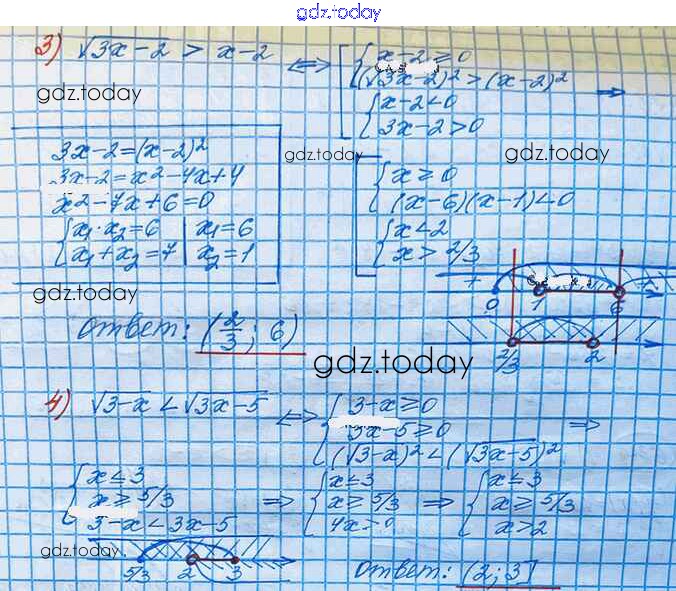 gdz.today
3) √(3x-2) > x-2 ⟺ [ { x-2 ≥ 0
(√(3x-2))² > (x-2)² ⇒
{ x-2 < 0
3x-2 > 0
gdz.today
3x-2=(x-2)²
3x-2=x²-4x+4
x²-7x+6=0
{ x₁·x₂=6 | x₁=6
x₁+x₂=7 | x₂=1
gdz.today
gdz.today
[ { x ≥ 0
(x-6)(x-1)<0
{ x<2
x > 2/3
gdz.today
+ +
0 1 6
2/3 2
ответ: (2/3; 6)
gdz.today
4) √(3-x) < √(3x-5) ⟺ { 3-x ≥ 0
3x-5 ≥ 0 ⇒
(√(3-x))² < (√(3x-5))²
{ x ≤ 3
x ≥ 5/3
3-x < 3x-5
⇒ { x ≤ 3
x ≥ 5/3
⇒ { x ≤ 3
x ≥ 5/3
x > 2
gdz.today
5/3 2 3
ответ: (2; 3]